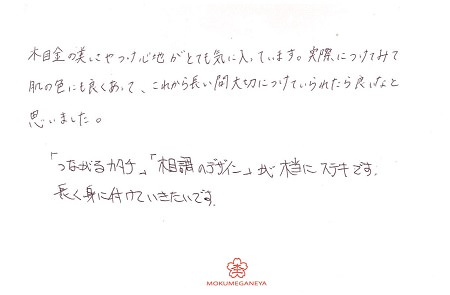 木目金の美しさやつけ心地がとても気に入っています。実際につけてみて
肌の色にも良くあって、これから長い間大切につけていられたら良いなと
思いました。
「つながるカタチ」「木目調のデザイン」が本当にステキです。
長く身に付けていきたいです。
MOKUMEGANEYA